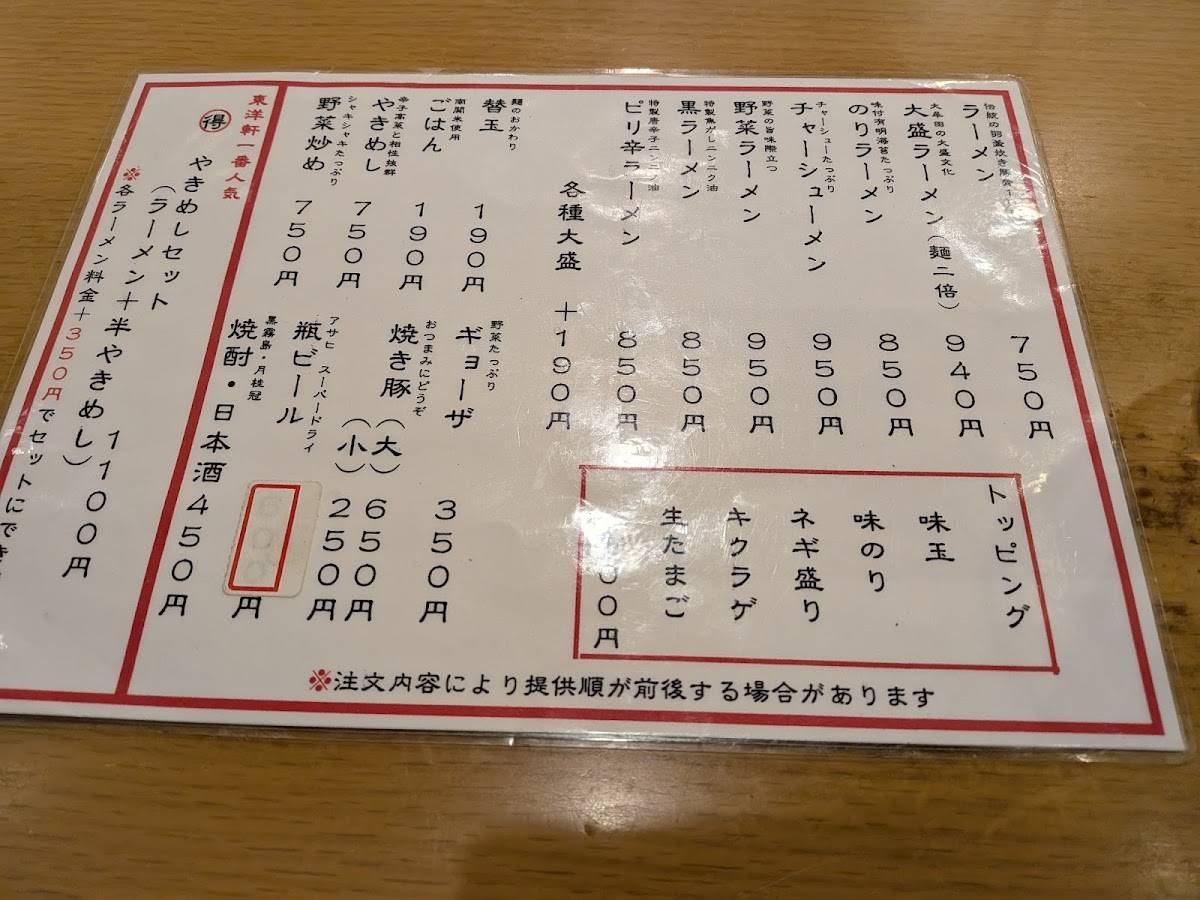 伝統の羽釜炊き豚骨
ラーメン 750円
大牟田の大盛文化
大盛ラーメン(麺二倍) 940円
味付有明海苔たっぷり
のりラーメン 850円
チャーシューたっぷり
チャーシューメン 950円
野菜の旨味際立つ
野菜ラーメン 950円
特製焦がしニンニク油
黒ラーメン 850円
特製唐辛子ニンニク油
ピリ辛ラーメン 850円
各種大盛 +190円
トッピング
味玉
味のり
ネギ盛り
キクラゲ
生たまご
00円
麺のおかわり
替玉 190円
南関米使用
ごはん 190円
辛子高菜と相性抜群
やきめし 750円
シャキシャキたっぷり
野菜炒め 750円
野菜たっぷり
ギョーザ 350円
おつまみにどうぞ
焼き豚(大) 650円
(小) 250円
アサヒ スーパードライ
瓶ビール 円
黒霧島・月桂冠
焼酎・日本酒 450円
※注文内容により提供順が前後する場合があります
東洋軒一番人気
得 やきめしセット
(ラーメン+半やきめし) 1100円
※各ラーメン料金+350円でセットにでき